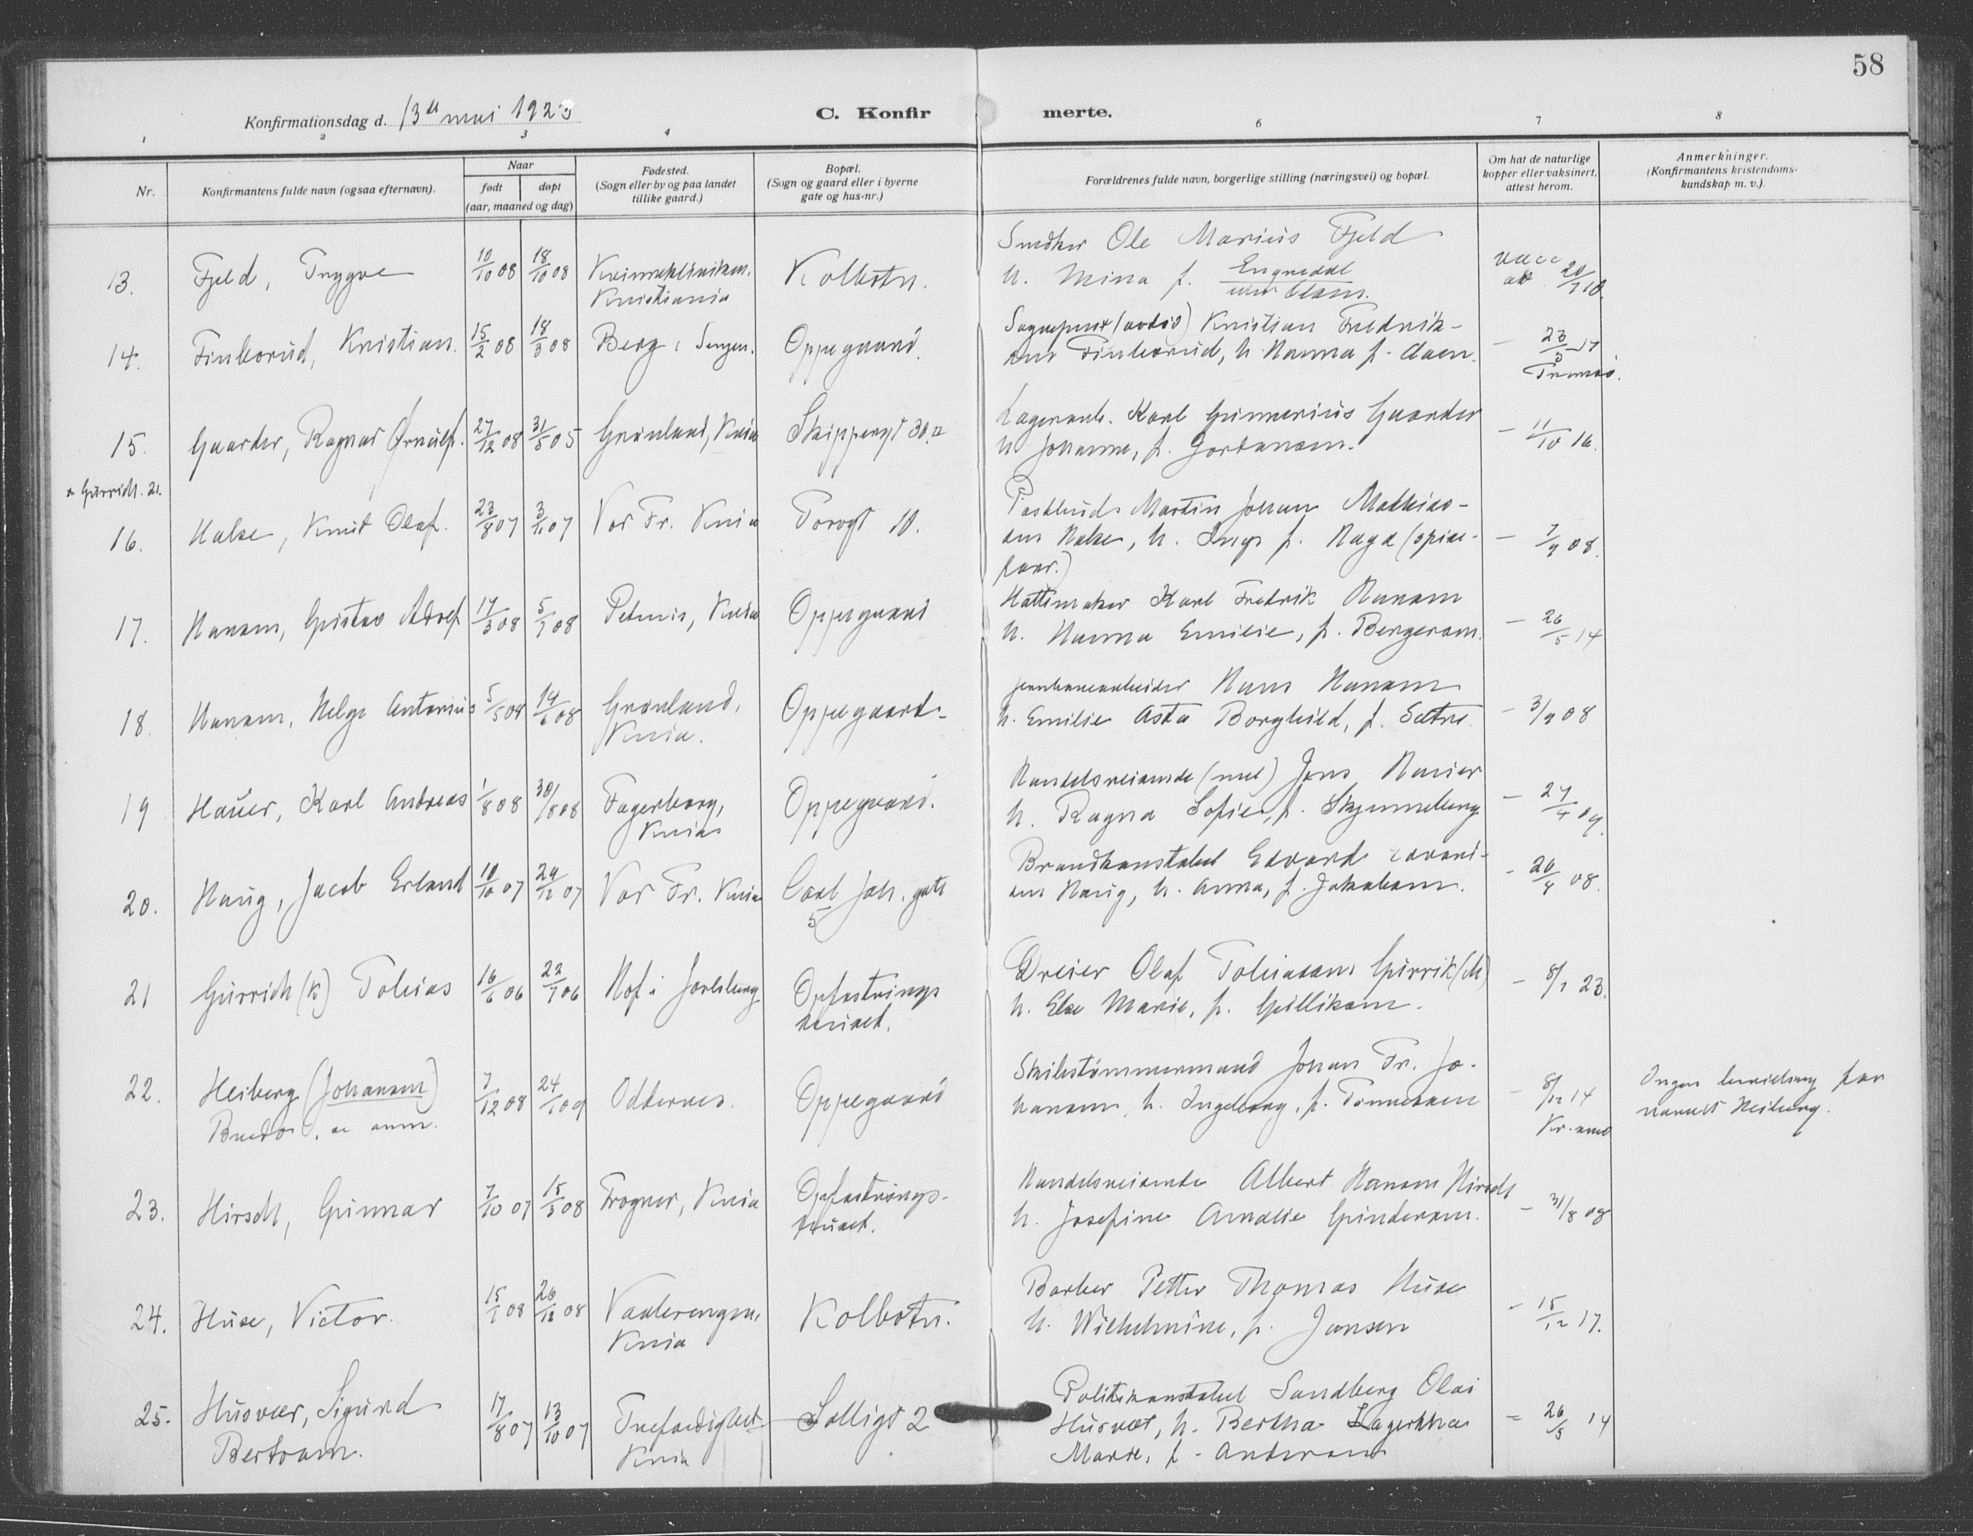 58
Konfirmationsdag d. 13de mai 1923
C. Konfirmerte.
1 2 3 4 6 7 8
Nr.
Konfirmantens fulde navn (ogsaa efternavn).
Naar
født
døpt
(aar, maaned og dag)
Fødested.
(Sogn eller by og paa landet
tillike gaard.)
Bopæl.
(Sogn og gaard eller i byerne
gate og hus-nr.)
Forældrenes fulde navn, borgerlige stilling (næringsvei) og bopæl.
Om hat de naturlige
kopper eller vaksinert,
attest herom.
Anmerkninger.
(Konfirmantens kristendoms-
kundskap m. v.).
13. Fjeld, Trygve 10/10 08 18/10 08 Kristiania Kolbotn.
Ole Marius Fjeld
h. Mina f.
vacc
20/7 10.
14. Finborud, Kristian. 15/2 08 18/3 08 Berg i Oppegaard.
Kristian Fredrik-
sen Finborud, h. Hanna f.
- 23/3 17
Tromsø.
15. Gaarder, Ragnar Ørnulf. 27/12 08 31/5 05 Grønland, Knia Skippergt 30
Karl Gunnerius Gaarder
h. Johanne, f. Gordansen.
- 11/10 16.
x Gurrich. 21.
16. Halse, Knut Olaf. 23/8 07 3/11 07 Vor Fr. Knia Torvgt 10.
Postbud Martin Johan Mathias-
sen Halse, h. Inga f. Haga
- 7/9 08.
17. Hansen, Gustav Adolf 17/3 08 5/7 08 Petrus, Knia Oppegaard
Karl Fredrik Hansen
h. Hanna Emilie, f. Bergersen.
- 26/5 14
18. Hansen, Helge Antonius 5/5 08 14/6 08 Grønland,
Knia.
Oppegaard.
Jernbanearbeider Hans Hansen
h. Emilie Asta Borghild, f. Sætre.
- 3/9 08
19 Hauer, Karl Andreas 1/8 08 30/8 08 Fagerborg,
Knia
Oppegaard.
Handelsreisende Jens Hauer
h. Ragna Sofie, f. Skjenneberg
- 27/4 09.
20. Haug, Jacob Erland 10/10 07 29/12 07 Vor Fr. Knia Carl Joh. gate
5
Brandkonstabel Edvard Edvard-
sen Haug, h. Anna, f. Jakobsen.
- 20/4 08.
21 Gurrich (k) Tobias 16/6 06 22/7 06 Hof i Jarlsberg Opfostrings
huset.
Dreier Olaf Tobiassen Gurrik (ch)
h. Else Marie, f. Gulliksen.
- 8/1 23.
22. Heiberg (Johansen)
se anm.
7/12 08 24/1 09 Oddernes. Oppegaard
Skibstømmermand Johan Fr. Jo-
hansen, h. Ingeborg, f. Tønnessen
- 8/12 14
Kr.sand
Ingen bevilling for
navnet Heiberg.
23. Hirsch, Gunnar 7/10 07 15/3 08 Frogner, Knia Opfostrings-
huset.
Handelsreisende Albert Hansen Hirsch
h. Josefine Amalie Gundersen.
- 31/8 08
24. Huse, Victor. 15/1 08 26/12 08 Vaalerengen,
Knia
Kolbotn.
Barber Petter Thomas Huse
h. Wilhelmine, f. Jansen
- 15/12 17.
25. Husvær, Sigurd
Bertram.
17/8 07 13/10 07 Trefoldighet
Knia
Solligt 2
Politikonstabel Sandberg Olai
Husvær, h. Bertha
Marie, f. Andersen
- 26/5 14